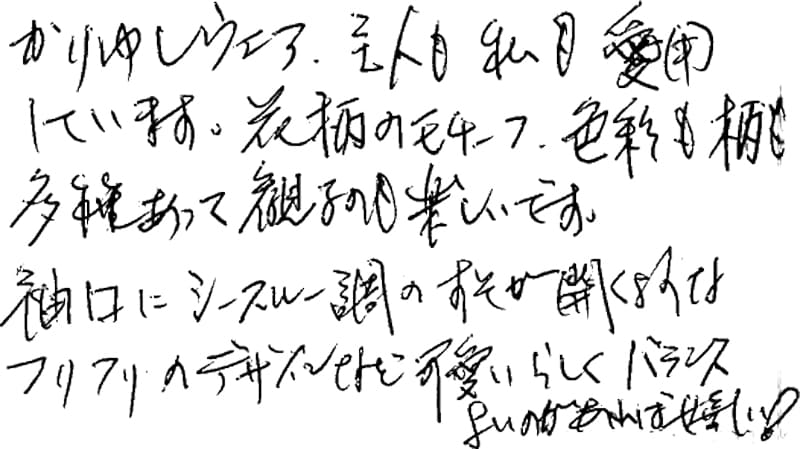 かりゆしウエア、主人も私も愛用
しています。花柄のモチーフ、色彩も柄も
多種あって観るのも楽しいです。
袖口にシースルー調のすそが開くような
フリフリのデザインなど可愛いらしくバランス
よいのがあれば嬉しい♪